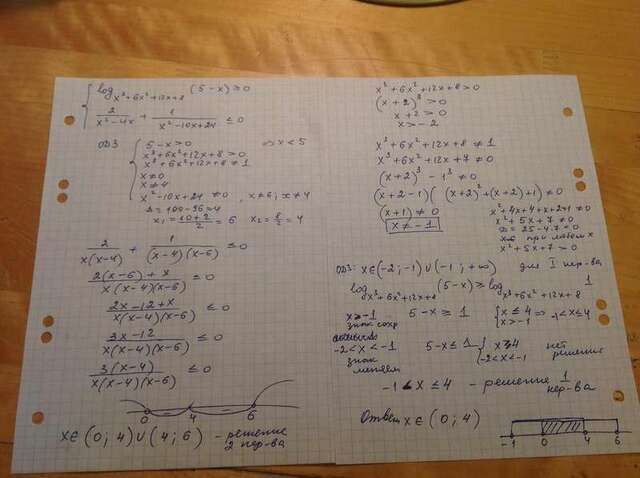 log x³+6x²+12x+8 (5-x) ≥ 0
2/(x²-4x) + 1/(x²-10x+24) ≤ 0
ОДЗ
5-x > 0 ⇒ x < 5
x³+6x²+12x+8 > 0
x³+6x²+12x+8 ≠ 1
x ≠ 0
x ≠ 4
x²-10x+24 ≠ 0, x ≠ 6; x ≠ 4
D = 100-96 = 4
x₁ = (10+2)/2 = 6 x₂ = 8/2 = 4
2/(x(x-4)) + 1/((x-4)(x-6)) ≤ 0
(2(x-6)+x)/(x(x-4)(x-6)) ≤ 0
(2x-12+x)/(x(x-4)(x-6)) ≤ 0
(3x-12)/(x(x-4)(x-6)) ≤ 0
3(x-4)/(x(x-4)(x-6)) ≤ 0
0 4 6
x ∈ (0; 4) ∪ (4; 6) - решение
2 нер-ва
x³+6x²+12x+8 > 0
(x+2)³ > 0
x+2 > 0
x > -2
x³+6x²+12x+8 ≠ 1
x³+6x²+12x+7 ≠ 0
(x+2)³ - 1³ ≠ 0
(x+2-1)((x+2)²+(x+2)+1) ≠ 0
(x+1) ≠ 0
x ≠ -1
x²+4x+4+x+2+1 ≠ 0
x²+5x+7 ≠ 0
D = 25-4·7 < 0
при любом x
x²+5x+7 > 0
ОДЗ: x ∈ (-2; -1) ∪ (-1; +∞) для I нер-ва
log x³+6x²+12x+8 (5-x) ≥ log x³+6x²+12x+8 1
x > -1 5-x ≥ 1 { x ≤ 4 x > -1 ⇒ -1 < x ≤ 4
знак сохр
-2 < x < -1 5-x ≤ 1 { x ≥ 4 -2 < x < -1 нет решения
знак
меняем
-1 < x ≤ 4 - решение 1 нер-ва
Ответ x ∈ (0; 4)
-1 0 4 6